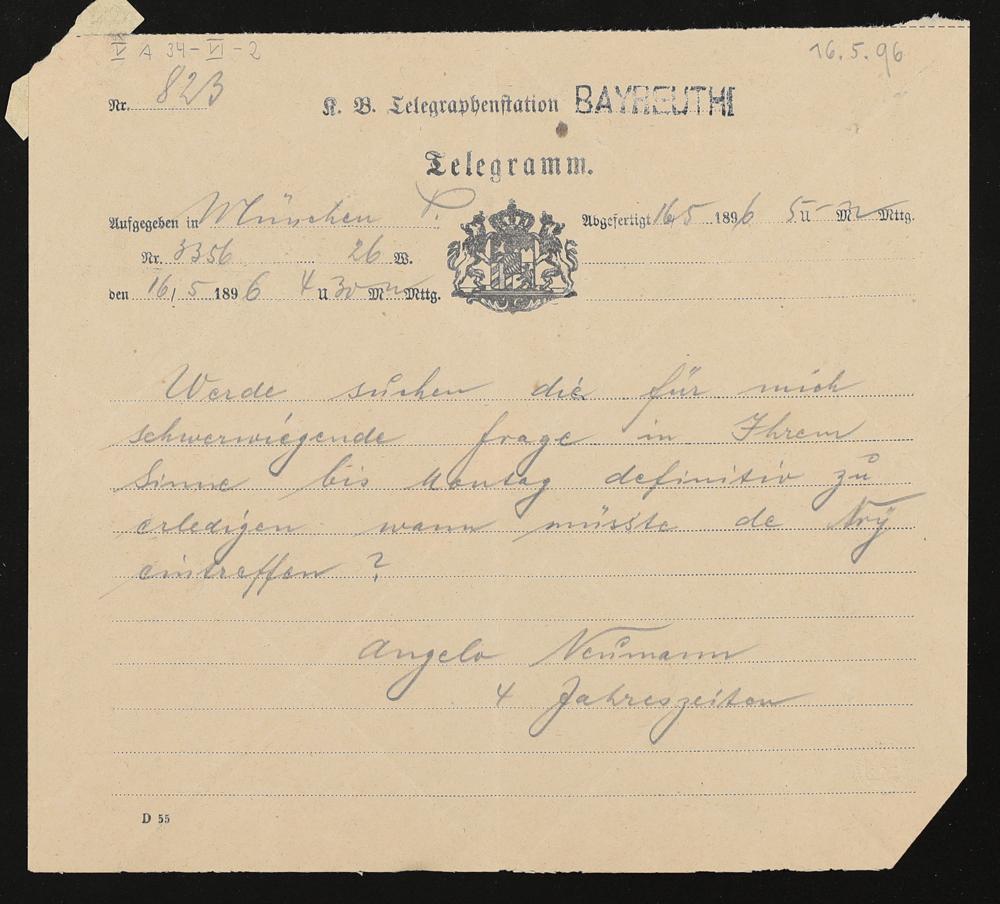 XV A 34-VI-2
16.5.96
Nr. 823
K. B. Telegraphenstation BAYREUTH
Telegramm.
Aufgegeben in München
Abgefertigt 16/5 1896 5 U - M Mttg.
Nr. 3356 26 W.
den 16/5 1896 4 U 30 M n Mttg.
Werde suchen die für mich
schwerwiegende frage in Ihrem
Sinne bis Montag definitiv zu
erledigen wann müsste de
eintreffen?
Angelo Neumann
4 Jahreszeiten
D 55